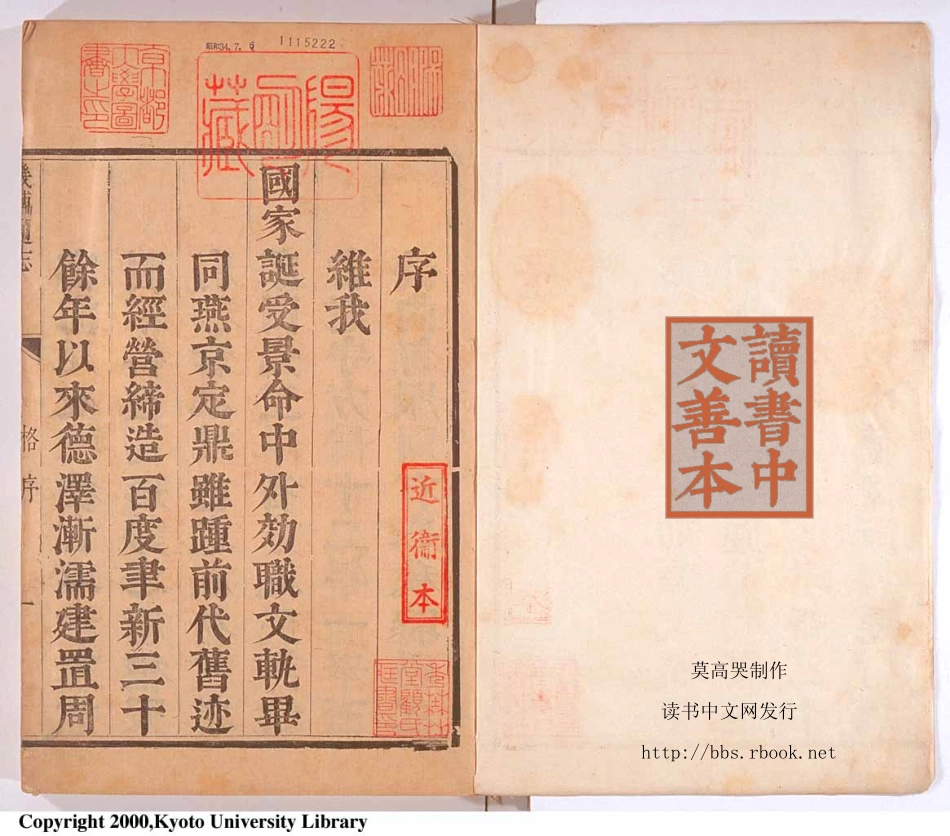 讀書中
文善本
莫高哭制作
读书中文网发行
http://bbs.rbook.net
1115222
京都
大學圖
書之印
藏
近衞本
序
維我
國家誕受景命中外効職文軌畢
同燕京定鼎雖踵前代舊迹
而經營締造百度聿新三十
餘年以來德澤漸濡建置周
畿輔通志
格序
一
Copyright 2000,Kyoto University Library